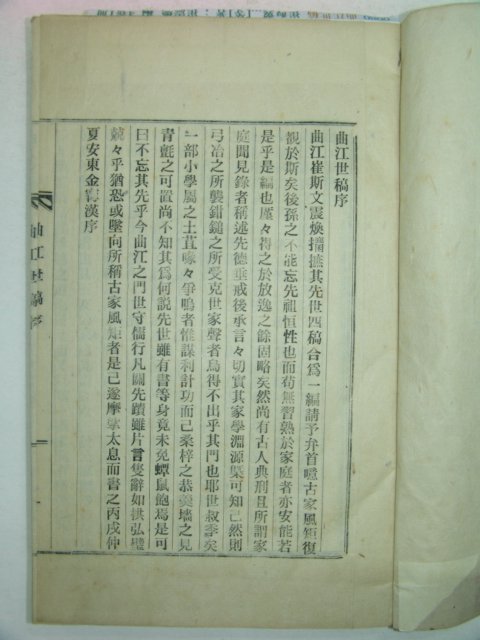 曲江世稿序
曲江崔斯文震煥攟摭其先世四稿合爲一編請予弁首噫古家風矩復
覩於斯矣後孫之不能忘先祖恒性也而苟無習熟於家庭者亦安能若
是乎是編也廑々得之於放逸之餘固略矣然尚有古人典刑且所謂家
庭聞見錄者稱述先德垂戒後承言々切實其家學淵源槩可知已然則
弓冶之所襲鉗鎚之所受克世家聲者烏得不出乎其門也耶世叔季矣
一部小學屬之土苴喙々爭鳴者惟謀利計功而已桑梓之恭羹墻之見
靑氈之可置尚不知其爲何說先世雖有書等身竟未免蟫鼠飽焉是可
曰不忘其先乎今曲江之門世守儒行凡關先蹟雖片言隻辭如拱弘璧
兢々乎猶恐或墜向所稱古家風矩者是已遂摩挲太息而書之丙戌仲
夏安東金寗漢序
曲江世稿序